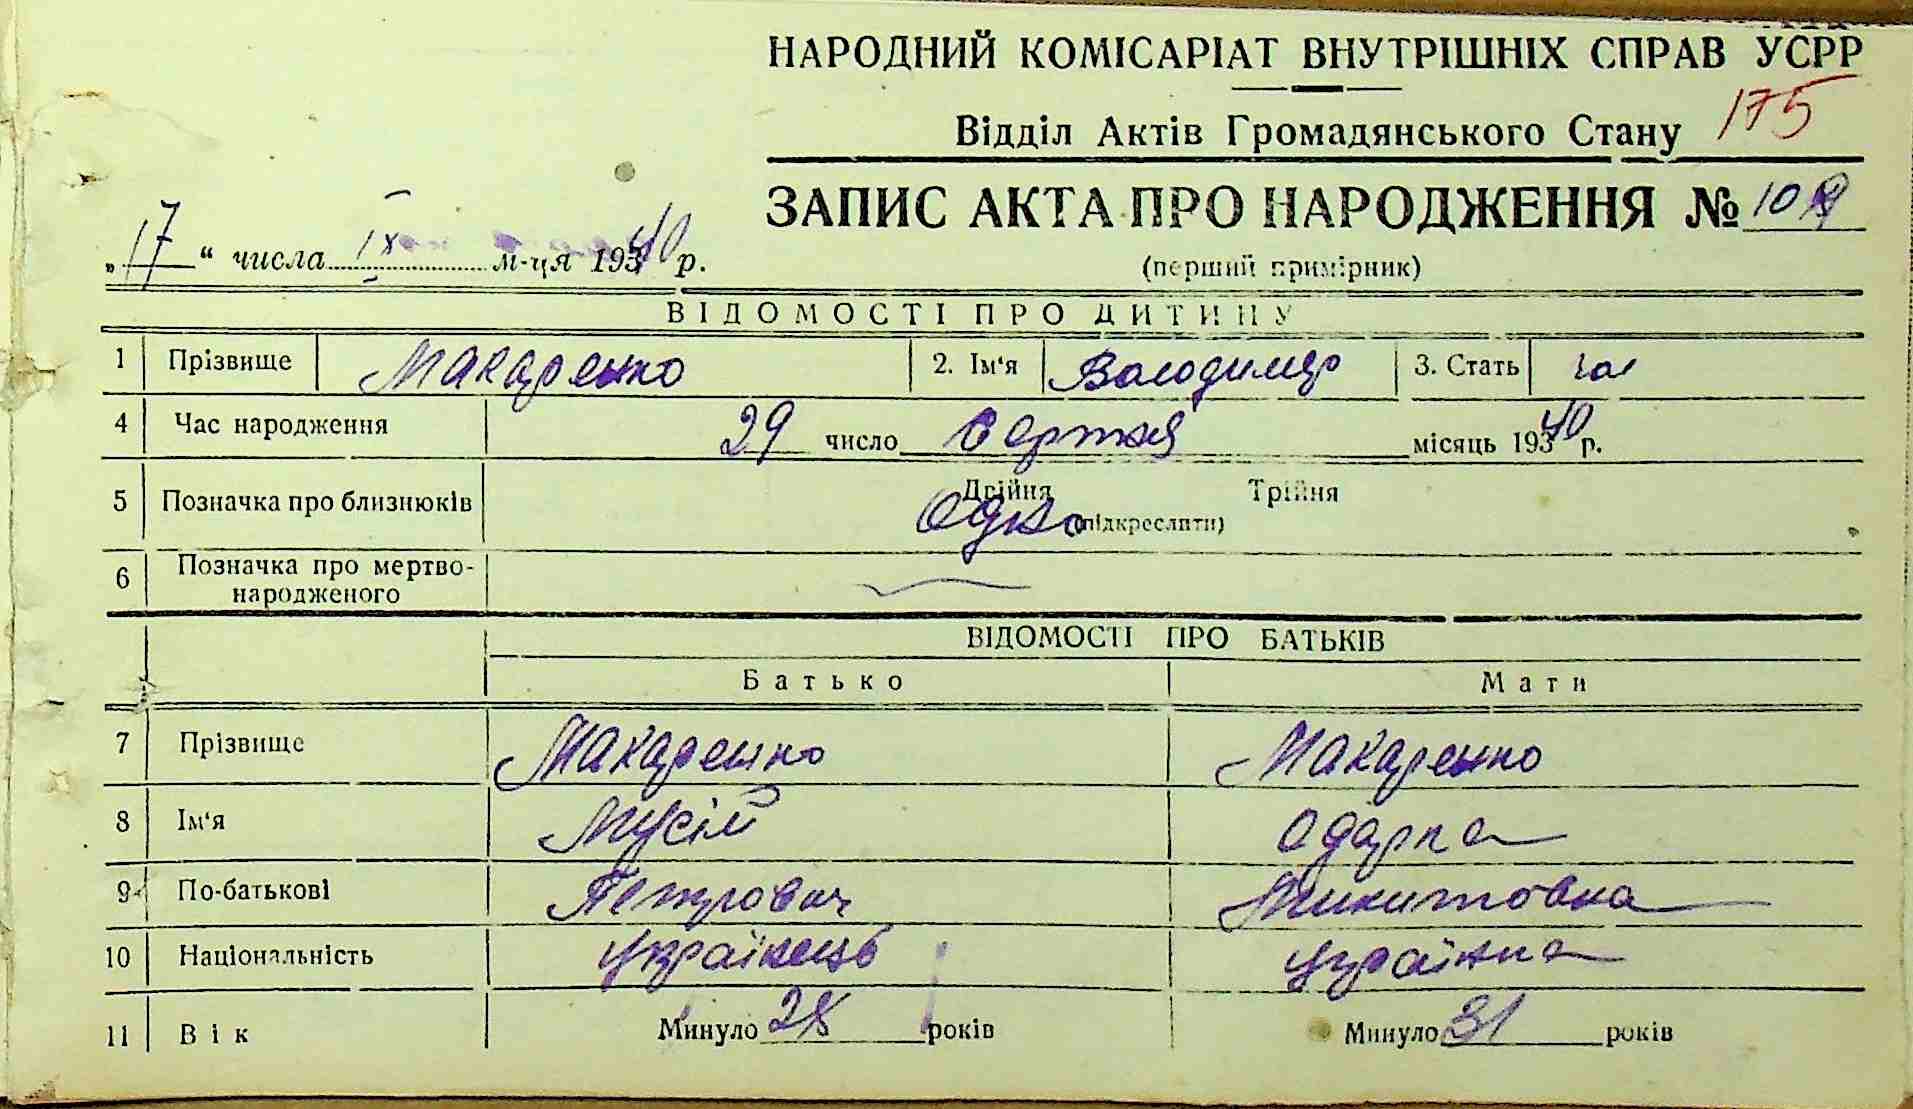 НАРОДНИЙ КОМІСАРІАТ ВНУТРІШНІХ СПРАВ УСРР
175
Відділ Актів Громадянського Стану
ЗАПИС АКТА ПРО НАРОДЖЕННЯ № 109
„17“ числа IX м-ця 1940 р.
(перший примірник)
ВІДОМОСТІ ПРО ДИТИНУ
1 Прізвище Макаренко 2. Ім'я Володимир 3. Стать чол
4 Час народження 29 число серпня місяць 1940 р.
5 Позначка про близнюків Двійня Трійня
Одно (підкреслити)
6 Позначка про мертво-
народженого
ВІДОМОСТІ ПРО БАТЬКІВ
Батько Мати
7 Прізвище Макаренко Макаренко
8 Ім'я Мусій Одарка
9 По-батькові Петрович Микитовна
10 Національність Українець Українка
11 Вік Минуло 28 років Минуло 31 років